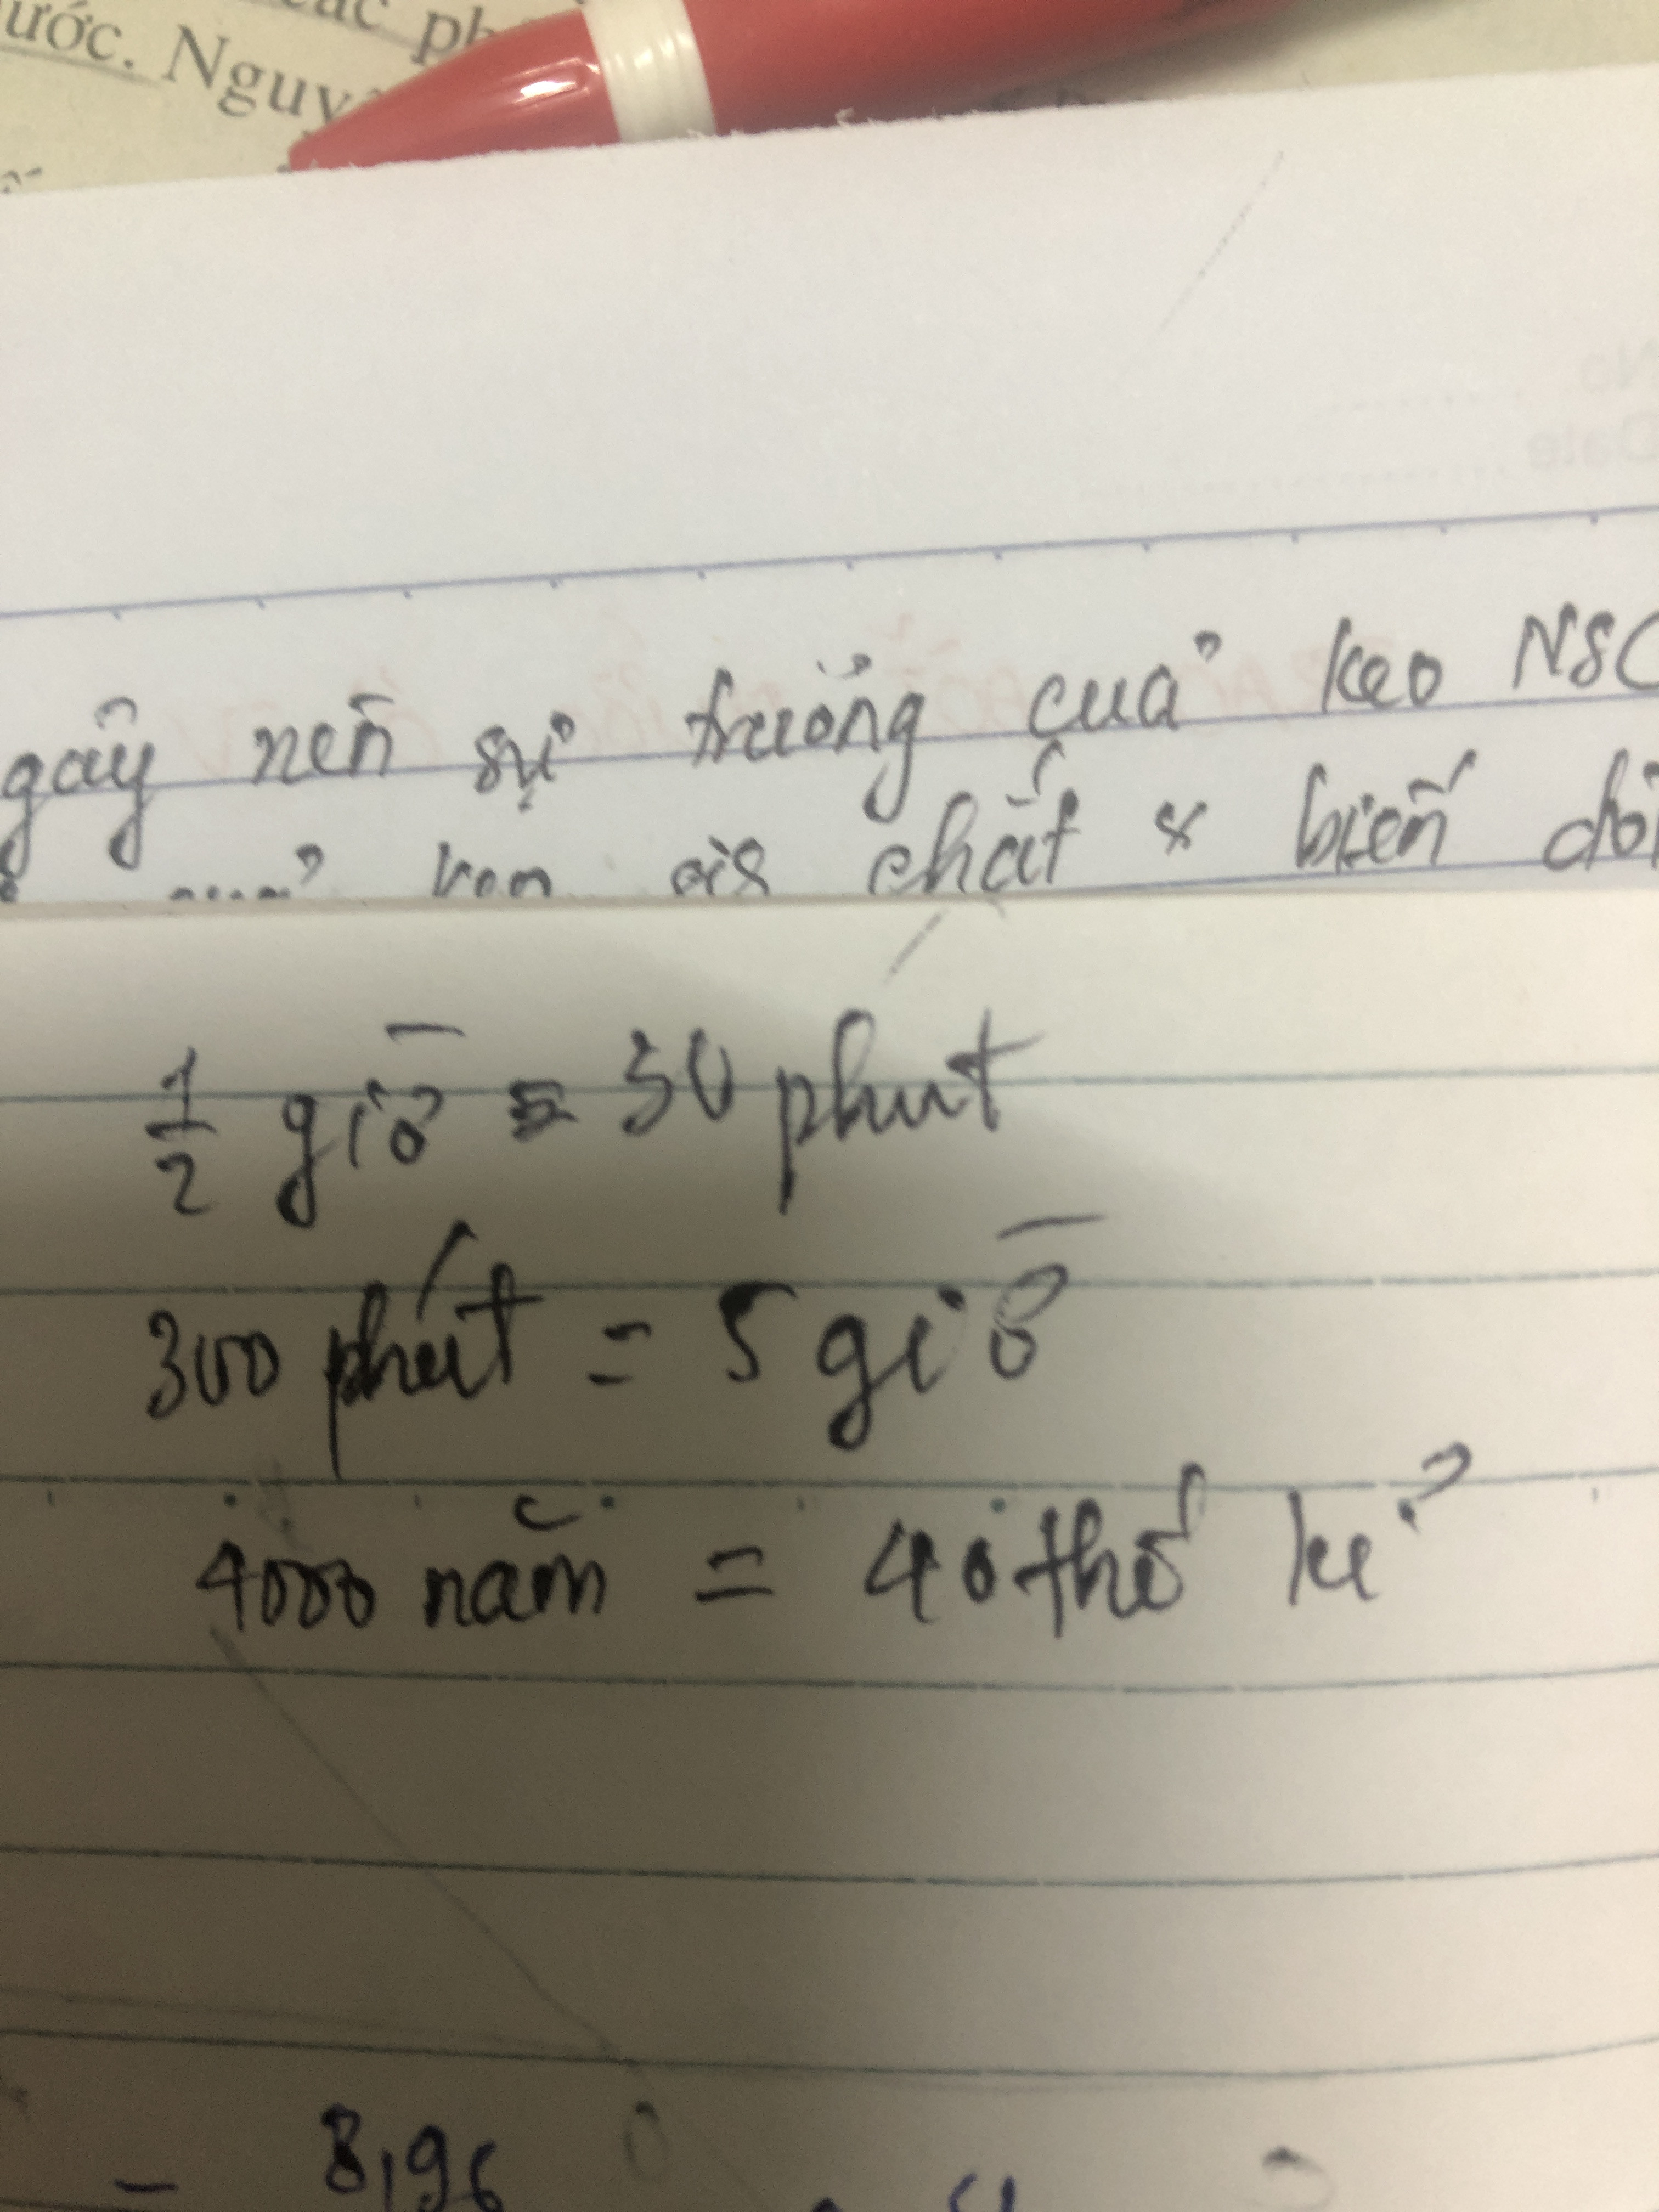 ước. Nguy
No
Date
gây nên sự trưởng của keo NSC
chất & biến đổi
1/2 giờ = 30 phút
300 phút = 5 giờ
4000 năm = 40 thế kỉ
= 8,96